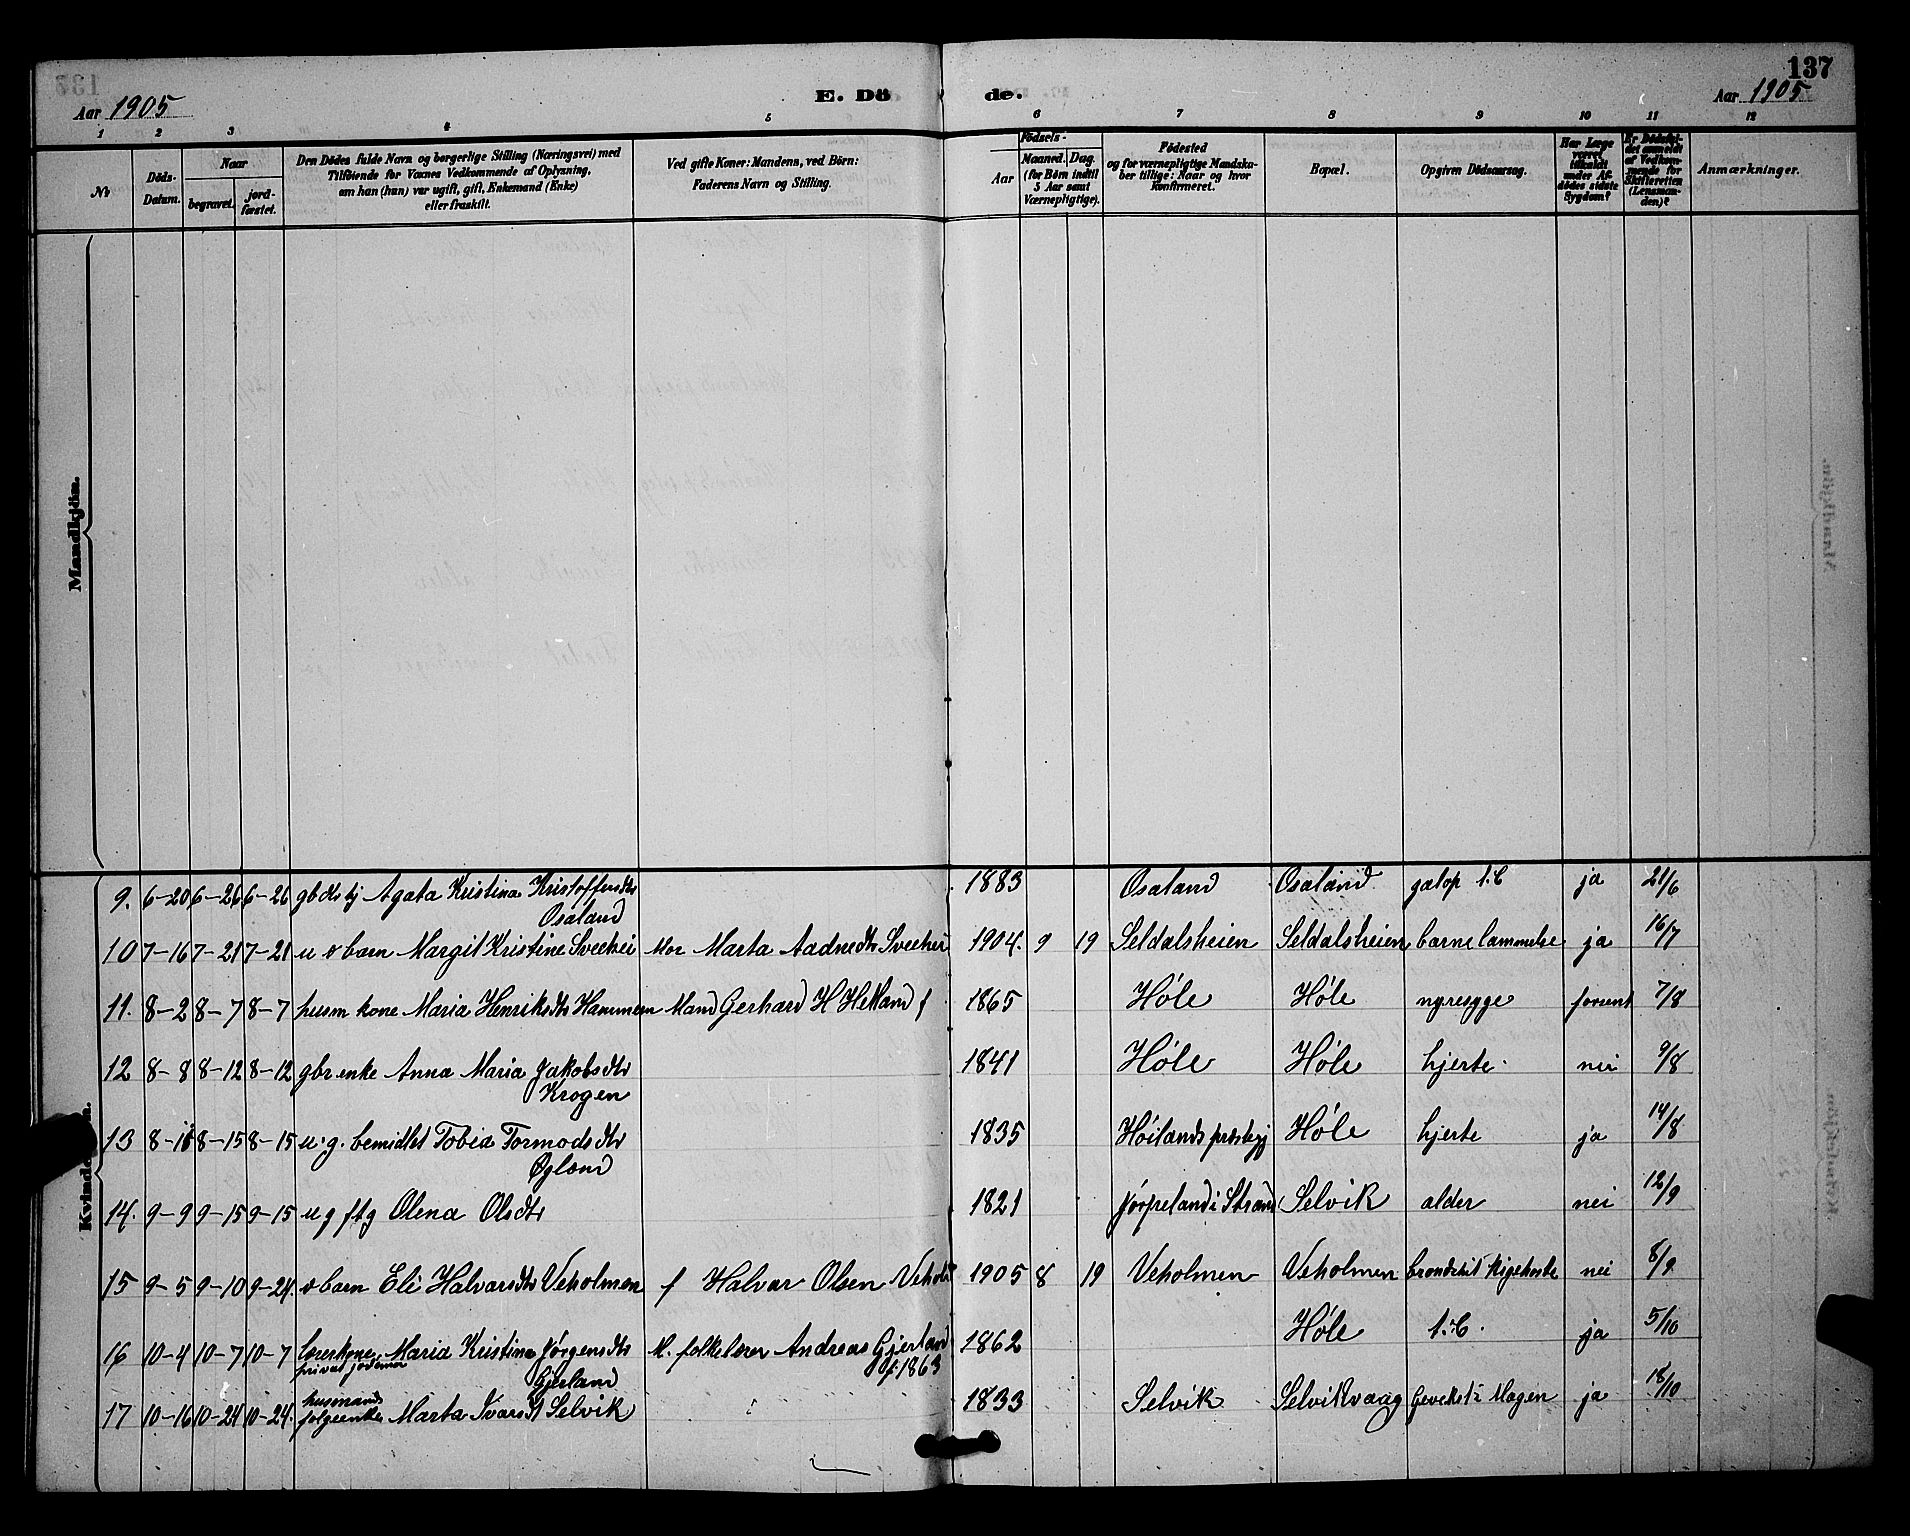 137
Aar 1905
E. Dö de.
Aar 1905
1 2 3 4 5 6 7 8 9 10 11 12
No
Döds-Datum.
Naar
begravet.
jord-fæstet.
Den Dödes fulde Navn og borgerlige Stilling (Næringsvei) med
Tilföiende for Voxnes Vedkommende af Oplysning,
om han (hun) var ugift, gift, Enkemand (Enke)
eller fraskilt.
Ved gifte Koner: Mandens, ved Börn:
Faderens Navn og Stilling.
Födsels-
Aar
Maaned. Dag.
(for Börn indtil
3 Aar samt
Værnepligtige).
Födested
og for værnepligtige Mandska-
ber tillige: Naar og hvor
konfirmeret.
Bopæl.
Opgiven Dödsaarsag.
Har Læge
været
tilkaldt
under Af-
dödes sidste
Sygdom?
Er Dödsfal-
det anmeldt
af Vedkom-
mende for
Skifteretten
(Lensman-
den)?
Anmærkninger.
Mandkjön.
9. 6-20 6-26 6-26 Agata Kristina Kristoffersdtr 1883 Osaland Osaland galop t.C ja 21/6
Osaland
10 7-16 7-21 7-21 u o barn Margit Kristine Sveehei Mor Marta Aadnedtr Sveehei 1904. 9 19 Seldalsheien Seldalsheien barnelammelse ja 16/7
11. 8-2 8-7 8-7 husm kone Maria Henriksdtr Hammeren Mand Gerhard H Helland f 1865 Høle Høle nyresyge forsent 7/8
12 8-8 8-12 8-12 gbr enke Anna Maria Jakobsdtr 1841 Høle Høle hjerte. nei 9/8
Krogen
13 8-15 8-15 u.g. bemidlet Tobia Tormodsdtr 1835 Høilands prestegj Høle hjerte ja 14/8
Øglænd
14. 9-9 9-15 9-15 u g ftg Olena Olsdtr 1821 Jørpeland i Strand Selvik alder nei 12/9
15 9-5 9-10 9-24. o barn Eli Halvarsdtr Veholmen f Halvar Olsen Vehol 1905 8 19 Veholmen Veholmen brondchit kigehoste nei 8/9
16 10-4 10-7 10-7 lærerkone, Maria Kristine Jørgensdtr M. folkelærer Andreas Gjerland 1862 Høle t.C. ja 5/10
privat jodemor Gjerland f. 1863
husmands
17 10-16 10-24 10-24. folgeenke Marta Ivarsdt Selvik 1833 Selvik Selvikvaag Gevekst i Magen ja 18/10